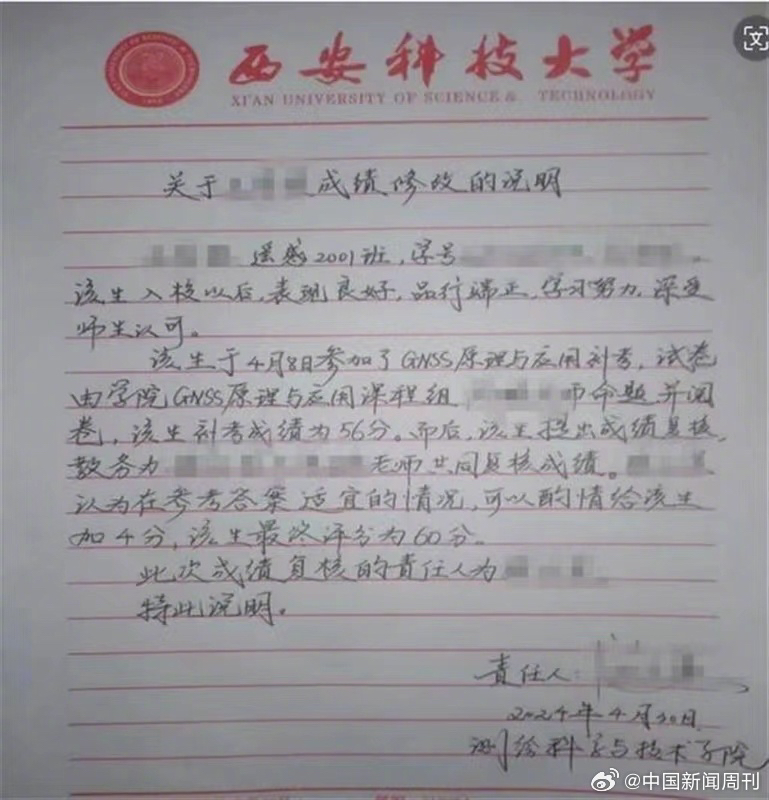 西安科技大学
XI'AN UNIVERSITY OF SCIENCE & TECHNOLOGY
关于 成绩修改的说明
遥感2001班，学号
该生入校以后，表现良好，品行端正，学习努力，深受
师生认可。
该生于4月8日参加了GNSS原理与应用补考，试卷
由学院GNSS原理与应用课程组 师命题并阅
卷，该生补考成绩为56分。而后，该生提出成绩复核，
教务为 老师共同复核成绩。
认为在参考答案适宜的情况，可以酌情给该生
加4分，该生最终评分为60分。
此次成绩复核的责任人为
特此说明。
责任人：
2024年4月30日
测绘科学与技术学院
@中国新闻周刊